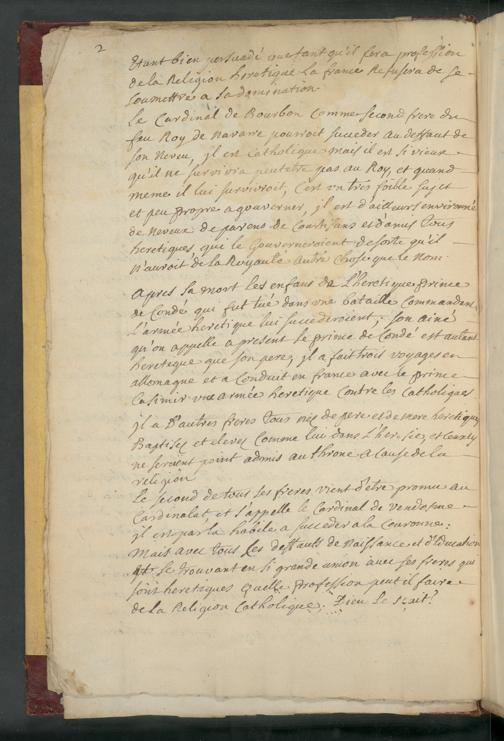 2
Etant bien persuadé que tant qu'il fera profession
de la Religion heretique la france Refusera de se
soumettre a sa domination.
Le Cardinal de Bourbon Comme second frere du
feu Roy de Navarre pourroit succeder au deffaut de
son Neveu, jl est Catholique mais il est si vieux
qu'il ne survivra peutetre pas au Roy, et quand
meme il lui survivroit, c'est un tres foible sujet
et peu propre a gouverner, jl est d'ailleurs environné
de Neveux de parens de Courtisans et d'amis tous
heretiques, que le Gouverneroient de sorte qu'il
n'auroit de la Royauté autre chose que le Nom.
Apres sa mort les enfans de L'heretique Prince
de Condé qui fut tué dans une bataille Commandant
L'armée heretique lui succederoient; son ainé
qu'on appelle a present le prince de Condé est autant
heretique que son pere; jl a fait trois voyages en
allemagne et a Conduit en france avec le prince
Casimir une armée heretique Contre les Catholiques
jl a D'autres freres tous nés de pere et de mere heretiques
Baptisés et elevés Comme lui dans L'heresie; et Ceux cy
ne seroient point admis au throne a Cause de la
religion
Le second de tous ses freres vient d'être promu au
Cardinalat et s'appelle le Cardinal de vendosme
jl est par la habile a succeder a la Couronne:
Mais avec tous les deffauts de Naissance et d'Education
se trouvant en si grande union avec ses freres qui
sont heretiques quelle profession peut il faire
de la Religion Catholique, Dieu le scait?